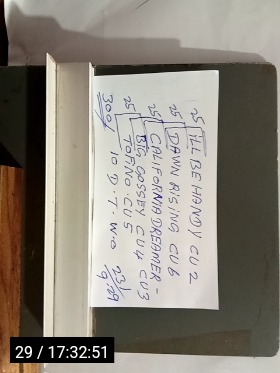 25 I'LL BE HANDY CU 2
25 DAWN RISING CU 6
25 CALIFORNIA DREAMER - CU3
25 BIG GOSSEY CU 4
TORNO. CU 5
300/ 10 D. T. W a
23/9
29 / 17:32:51